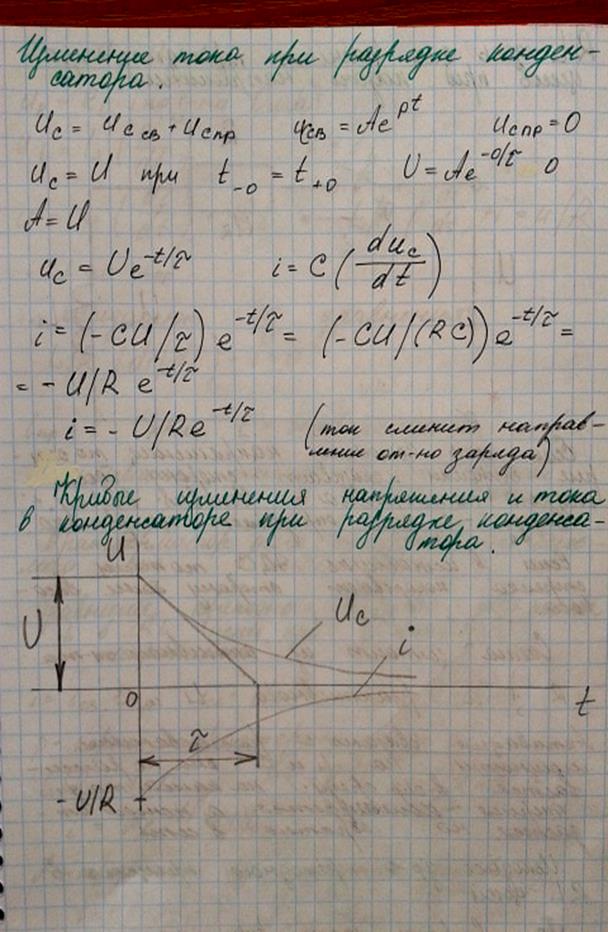 Изменение тока при разрядке конден-
сатора.
u_c = u_{ccв} + u_{cпр}   u_{cсв} = Ae^{pt}   u_{cпр} = 0
u_c = U при t_{-0} = t_{+0}   U = Ae^{-0/τ}   0
A = U
u_c = Ue^{-t/τ}   i = C (du_c/dt)
i = (-CU/τ) e^{-t/τ} = (-CU/(RC)) e^{-t/τ} =
= - U/R e^{-t/τ}
i = - U/Re^{-t/τ}   (ток сменит направ-
ление от-но заряда)
Кривые изменения напряжения и тока
в конденсаторе при разрядке конденса-
тора.
U
u_c
U
i
0
t
τ
- U/R